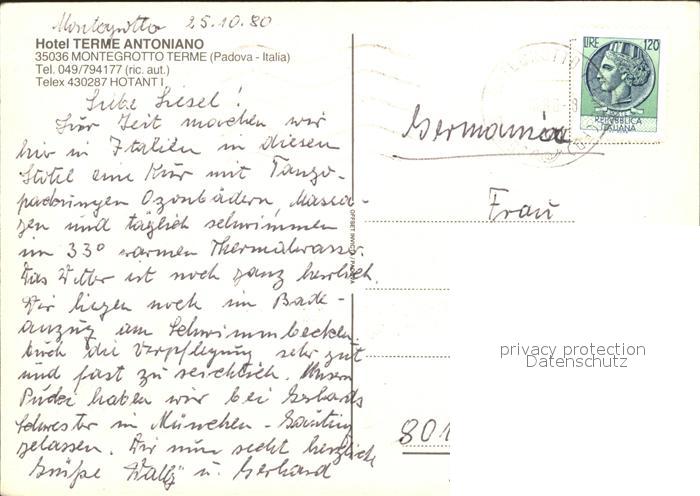 Montegrotto 25.10.80
Hotel TERME ANTONIANO
35036 MONTEGROTTO TERME (Padova - Italia)
Tel. 049/794177 (ric. aut.)
Telex 430287 HOTANT I
Liebe Liesel!
Zur Zeit machen wir
hier in Italien in diesen
Hotel eine Kur mit Fango-
packungen Ozonbädern, Massa-
gen und täglich schwimmen
im 33° warmen Thermalwasser.
Das Wetter ist noch ganz herrlich.
Wir liegen noch im Bade-
anzug am Schwimmbecken.
Auch die Verpflegung sehr gut
und fast zu reichlich. Unsern
Pudel haben wir bei Gerhards
Schwester in München-Gauting
gelassen. Wir nun recht herzliche
Grüße Wally u. Gerhard
OFFSET INVICTA PADOVA
LIRE 120
POSTE
REPUBBLICA
ITALIANA
Germania
Frau
801
privacy protection
Datenschutz